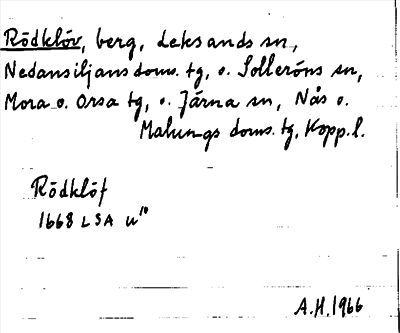 Rödklöv, berg, Leksands sn,
Nedansiljans doms. tg, o. Solleröns sn,
Mora o. Orsa tg, o. Järna sn, Nås o.
Malungs doms. tg, Kopp. l.
Rödklöf
1668 LSA U¹⁰
A.H. 1966